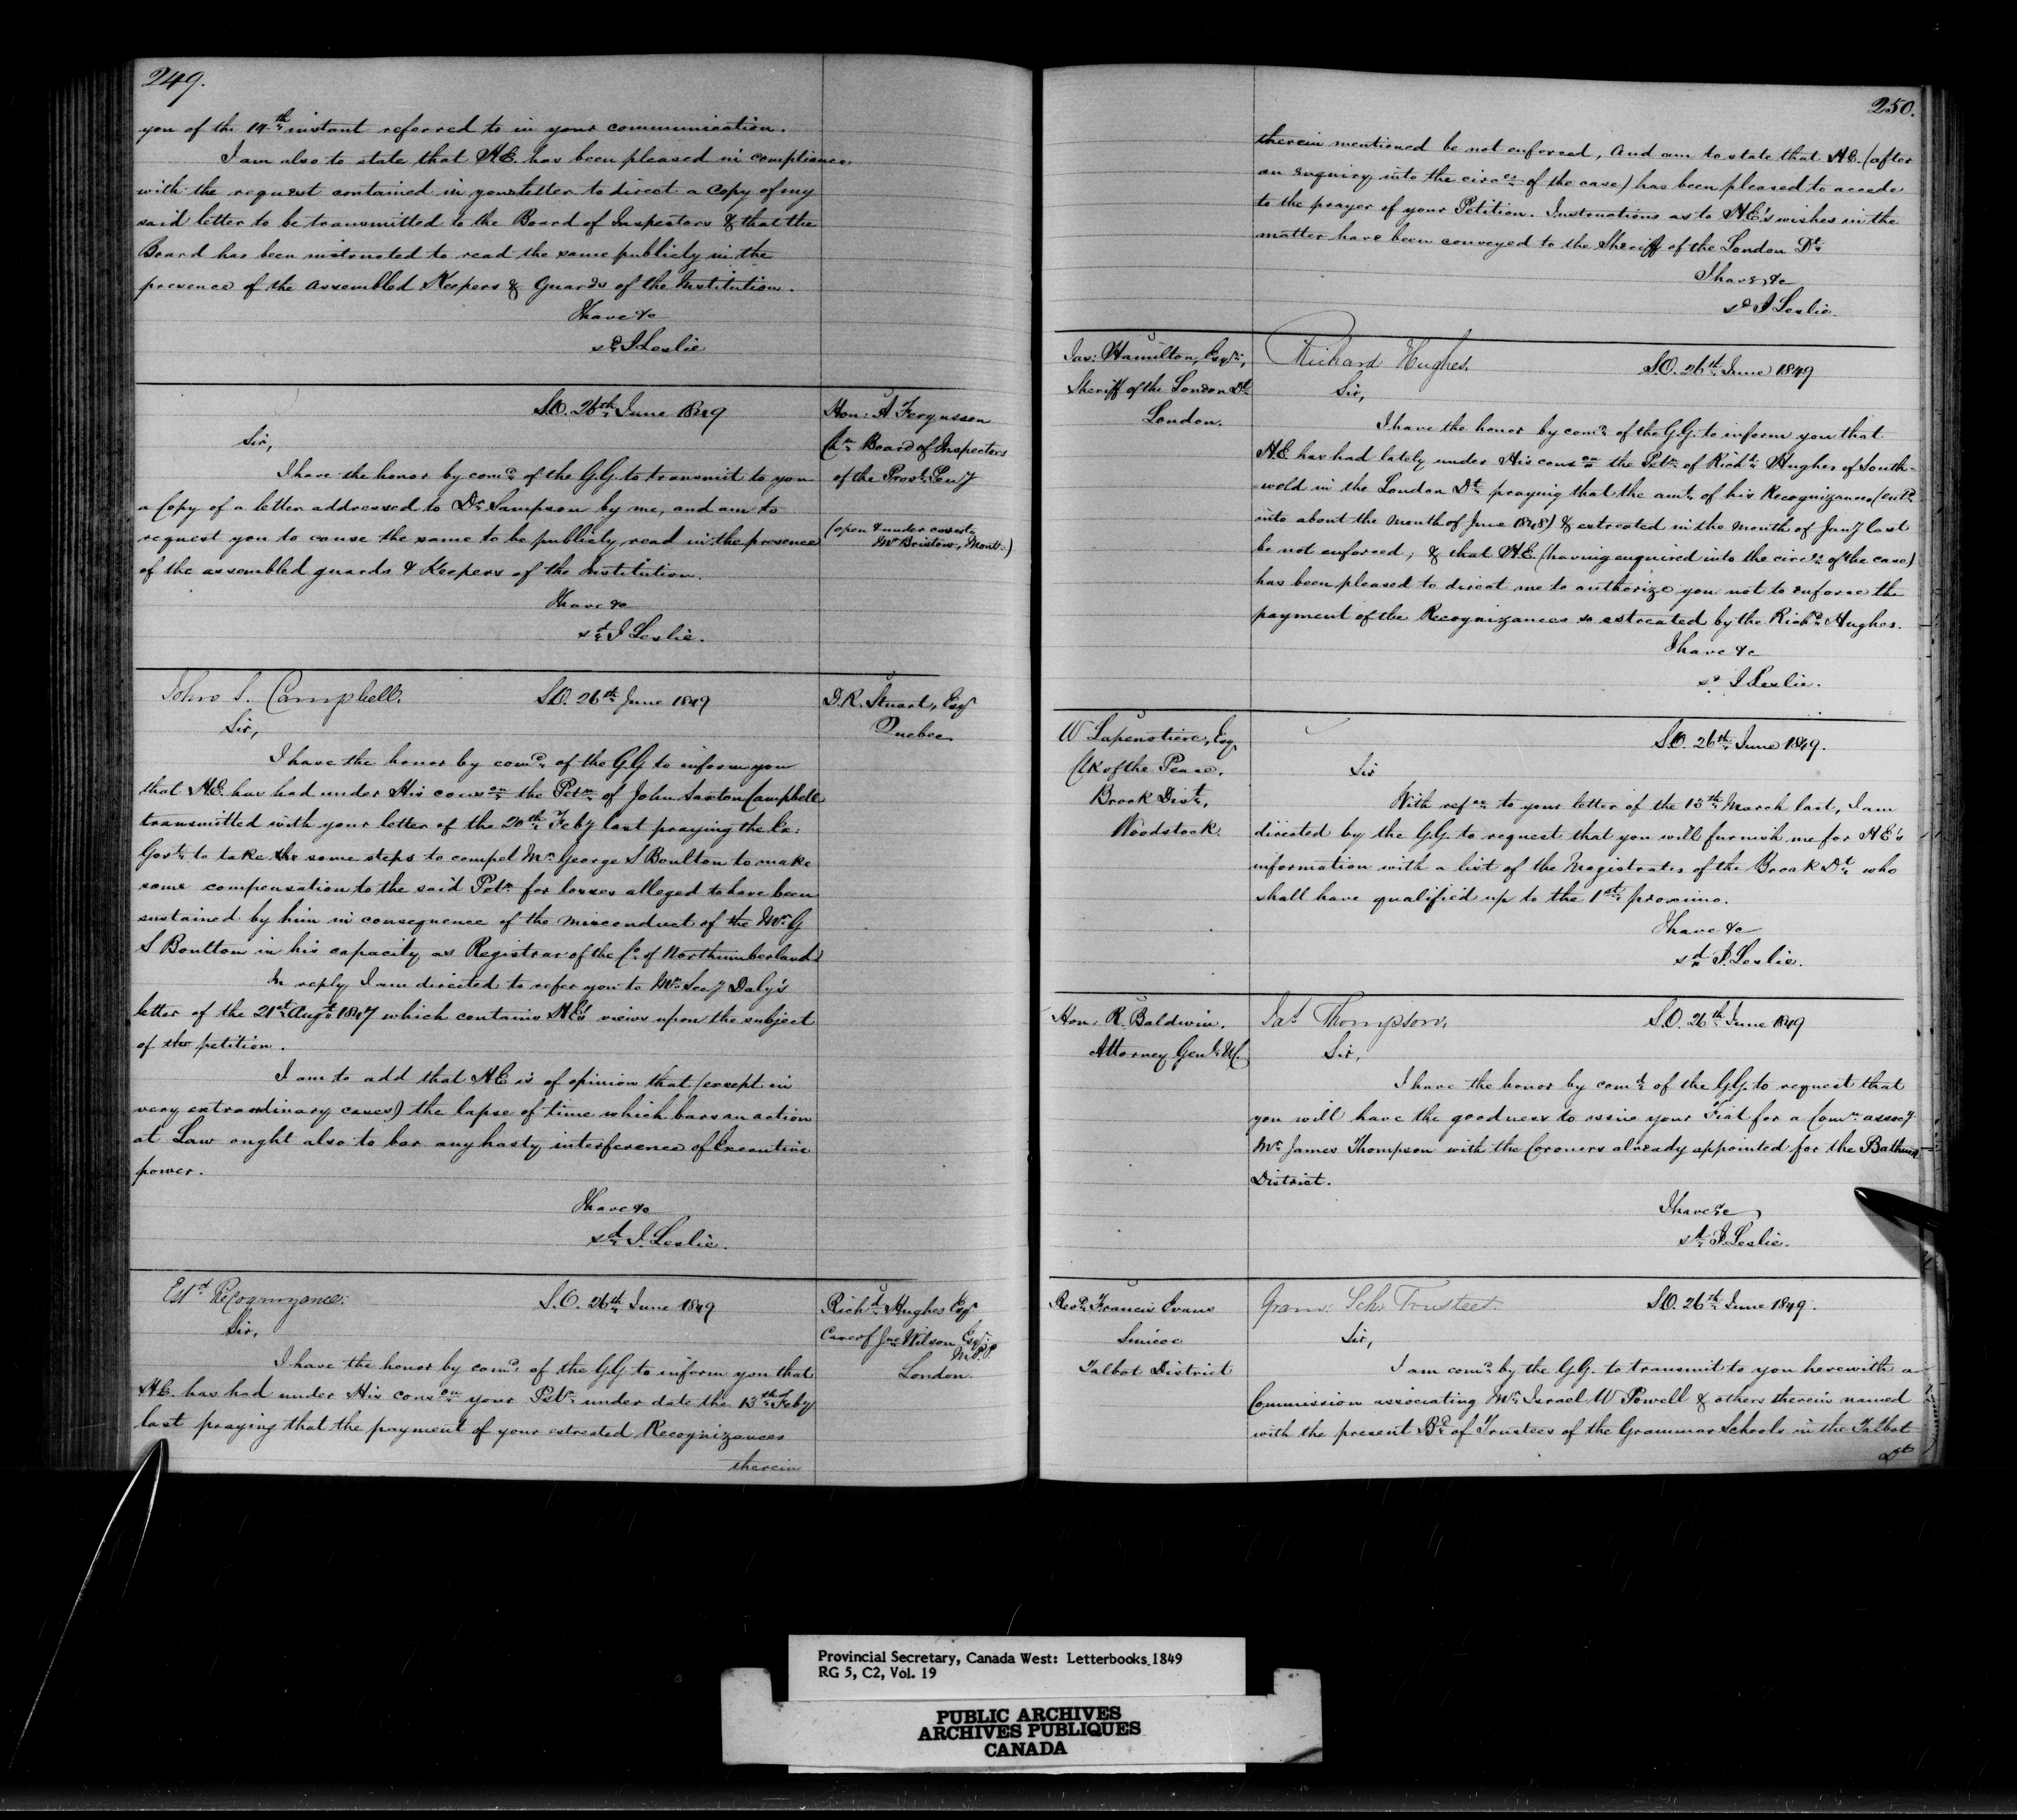 249.
you of the 19th instant referred to in your communication.
I am also to state that H.E. has been pleased in compliance
with the request contained in your letter to direct a Copy of my
said letter to be transmitted to the Board of Inspectors & that the
Board has been instructed to read the same publicly in the
presence of the assembled Keepers & Guards of the Institution.
I have &c
sd J Leslie
S.O. 26th June 1849
Hon: A Fergusson
Chn Board of Inspectors
of the Provl Peny
(open & under cover to
Mr Bristow, Montl.)
Sir,
I have the honor by comd of the G.G. to transmit to you
a Copy of a letter addressed to Dr Sampson by me, and am to
request you to cause the same to be publicly read in the presence
of the assembled guards & Keepers of the Institution.
I have &c
sd J Leslie.
John S. Campbell.
S.O. 26th June 1849
D.R. Stuart, Esqr
Quebec
Sir,
I have the honor by comd of the G.G. to inform you
that H.E. has had under His conson the Petn of John Saxton Campbell
transmitted with your letter of the 20th Feby last praying the Ex:
Govt to take the some steps to compel Mr George S Boulton to make
some compensation to the said Petr for losses alleged to have been
sustained by him in consequence of the misconduct of the Mr G
S Boulton in his capacity as Registrar of the Co of Northumberland
In reply I am directed to refer you to Mr Secy Daly's
letter of the 21st Augt 1847 which contains H.E's views upon the subject
of the petition.
I am to add that H.E. is of opinion that (except in
very extraordinary cases) the lapse of time which bars an action
at Law ought also to bar any hasty interference of Executive
power.
I have &c
sd J. Leslie.
Estd Recognizance:
S.O. 26th June 1849
Richd Hughes Esqr
Care of Jno Wilson Esqr
M.P.P.
London
Sir,
I have the honor by comd of the G.G. to inform you that
H.E. has had under His conson your Petn under date the 13th Feby
last praying that the payment of your estreated Recognizances
therein
250.
therein mentioned be not enforced, and am to state that H.E. (after
an enquiry into the circes of the case) has been pleased to accede
to the prayer of your Petition. Instructions as to H.E's wishes in the
matter have been conveyed to the Sheriff of the London Dt
I have &c
sd J Leslie
Jas: Hamilton, Esqr,
Sheriff of the London Dt
London.
Richard Hughes.
S.O. 26th June 1849
Sir,
I have the honor by comd of the G.G. to inform you that
H.E. has had lately under His conson the Petn of Richd Hughes of South-
wold in the London Dt praying that the amt of his Recognizances (entd
into about the month of June 1848) & estreated in the month of Jany last
be not enforced, & that H.E. (having enquired into the circes of the case)
has been pleased to direct me to authorize you not to enforce the
payment of the Recognizances so estreated by the Richd Hughes.
I have &c
sd J Leslie.
W Lapenotiere, Esq.
Clk of the Peace,
Brock Dist,
Woodstock.
S.O. 26th June 1849.
Sir
With refce to your letter of the 13th March last, I am
directed by the G.G. to request that you will furnish me for H.E's
information with a list of the Magistrates of the Brock Dt who
shall have qualified up to the 1st proximo.
I have &c
sd J. Leslie.
Hon: R. Baldwin.
Attorney Genl U.C.
Jas Thompson.
S.O. 26th June 1849
Sir,
I have the honor by comd of the G.G. to request that
you will have the goodness to issue your Fiat for a Comn assocg
Mr James Thompson with the Coroners already appointed for the Bathurst
District.
I have &c
sd J. Leslie.
Revd Francis Evans
Simcoe
Talbot District
Gram: Schl Trustees.
S.O. 26th June 1849.
Sir,
I am comd by the G.G. to transmit to you herewith a
Commission associating Mr Israel W Powell & others therein named
with the present Bd of Trustees of the Grammar Schools in the Talbot
Dt
Provincial Secretary, Canada West: Letterbooks 1849
RG 5, C2, Vol. 19
PUBLIC ARCHIVES
ARCHIVES PUBLIQUES
CANADA